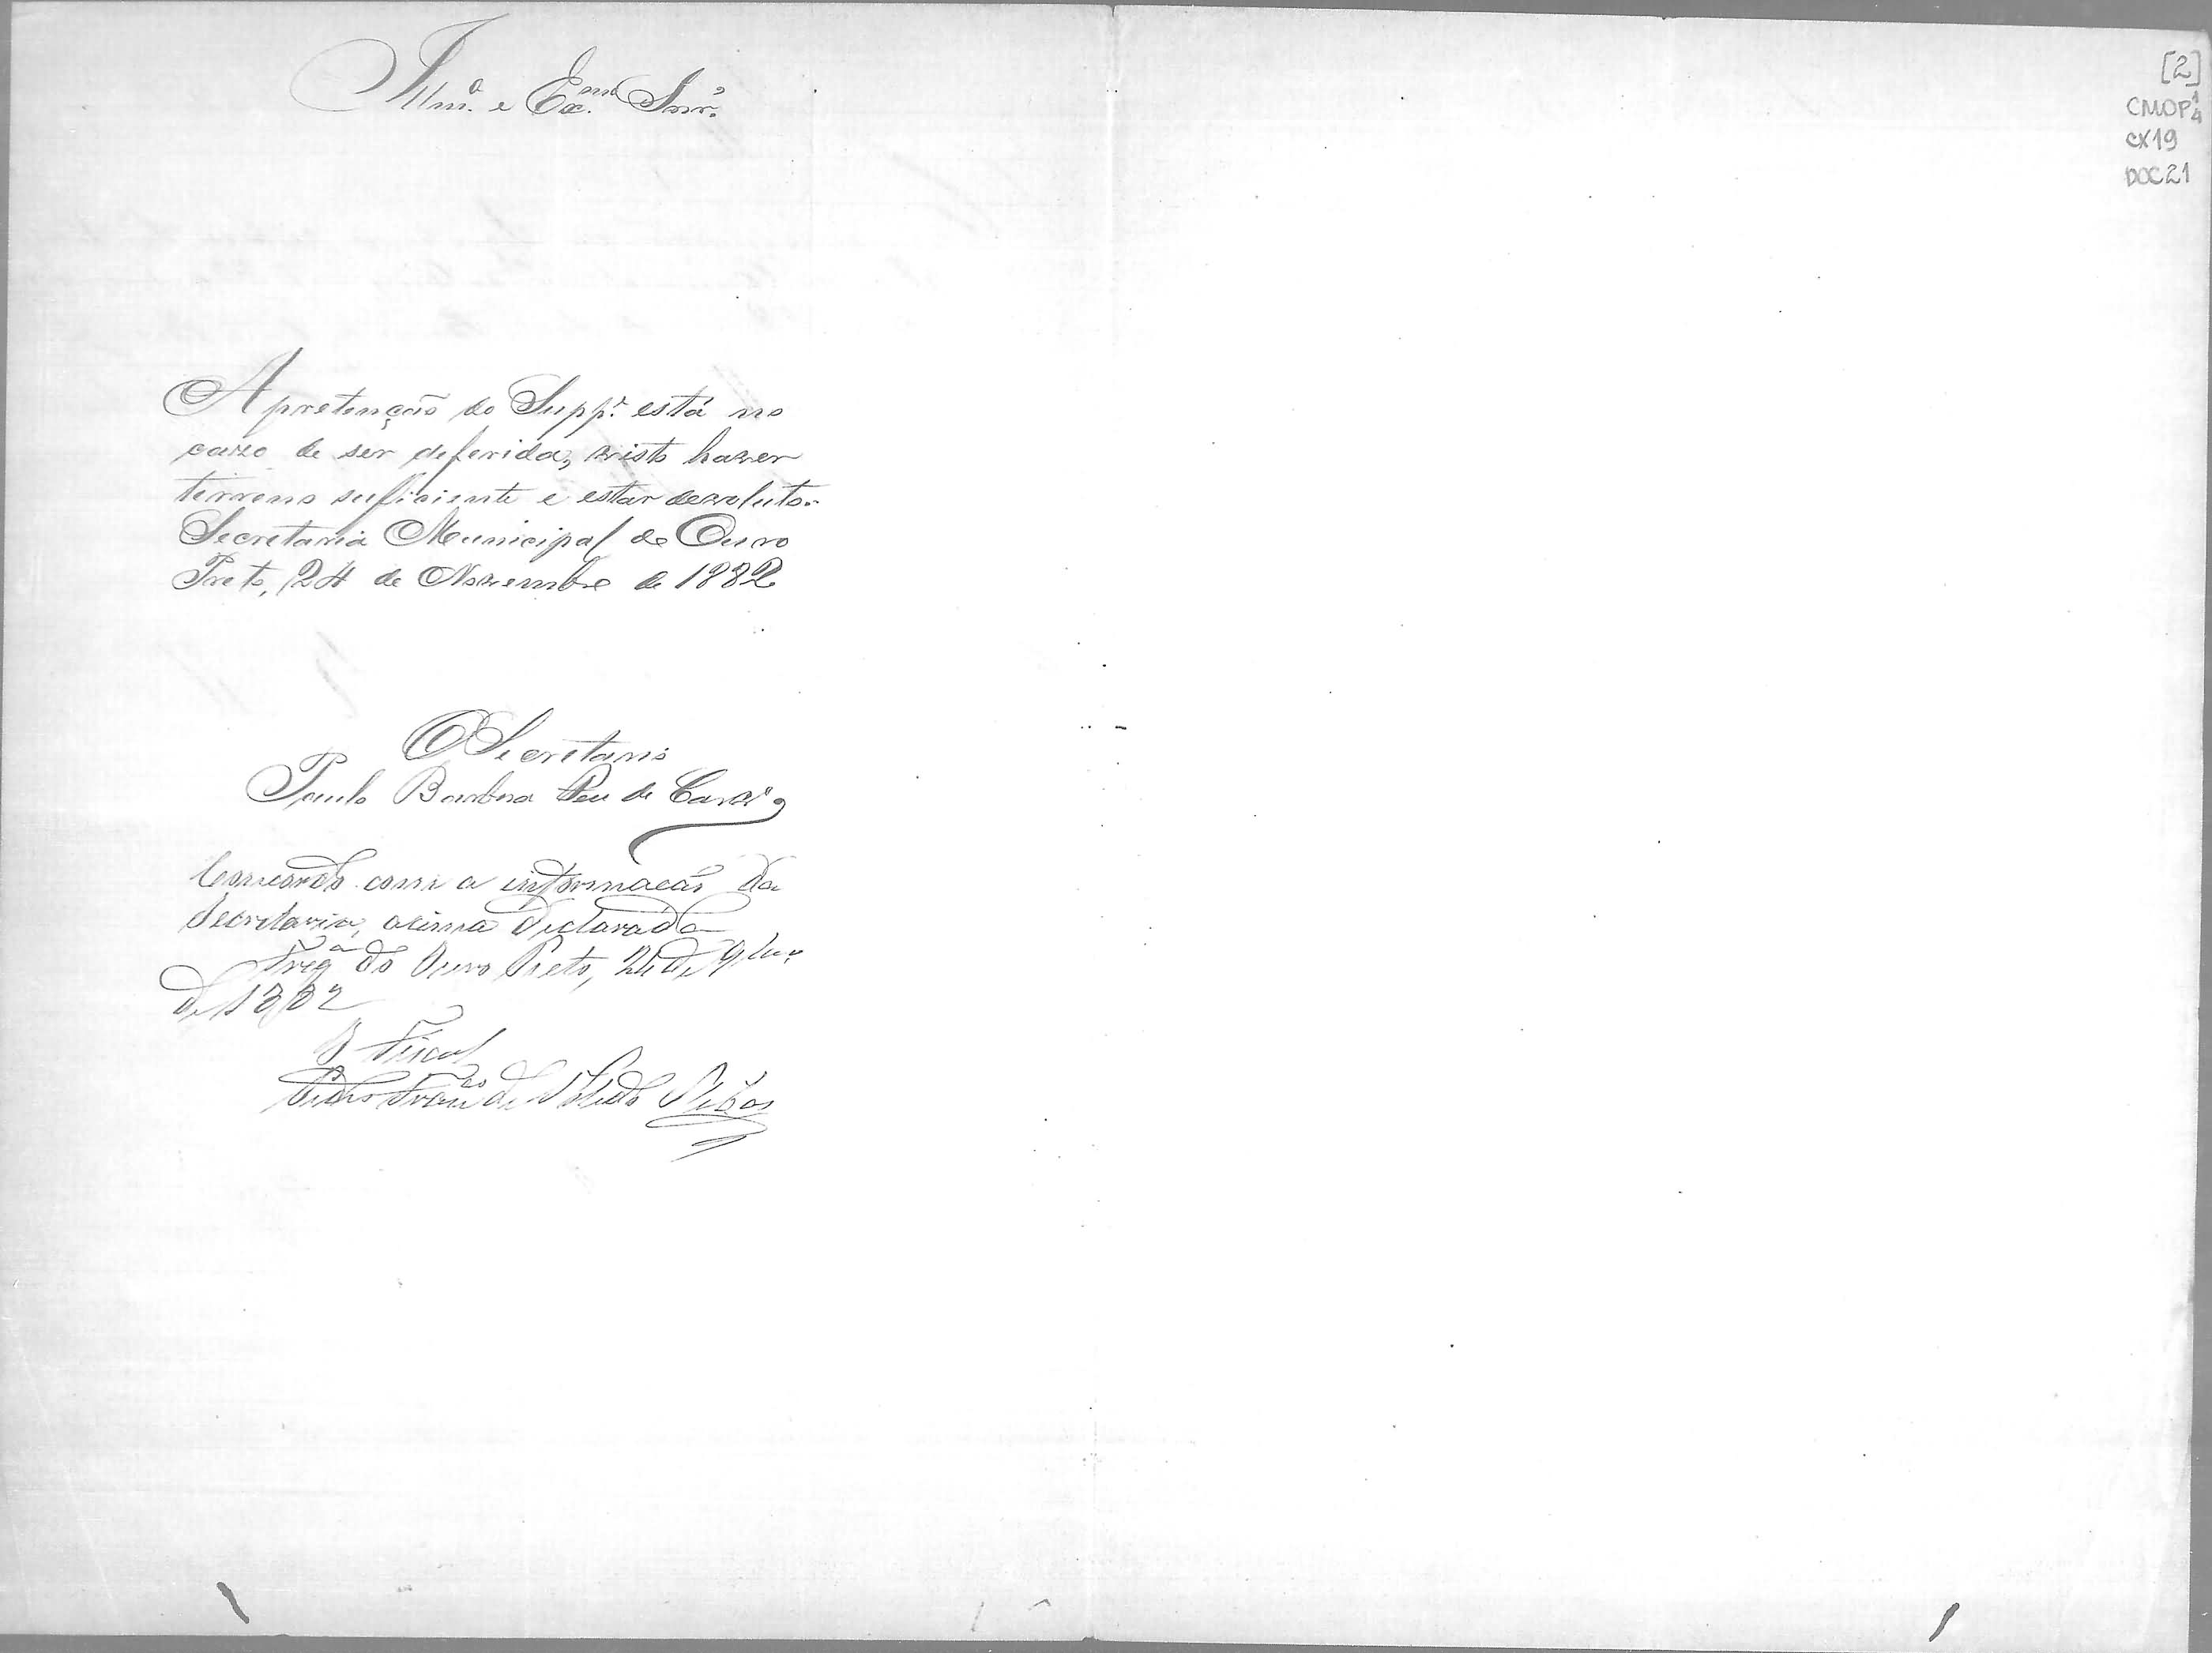 Illmº. e Exmº. Snrº.
[2]
CMOP 1/4
CX19
DOC21
A pretenção do Suppe. está no
cazo de ser deferida, visto haver
terreno suficiente e estar devoluto.
Secretaria Municipal de Ouro
Preto, 24 de Novembro de 1882
O Secretario
Paulo Barbosa de
Concordo com a informacão da
Secretaria, acima declarada
Fregª do Ouro Preto, de 9bro
de 1882
O Fiscal
Pedro de Toledo